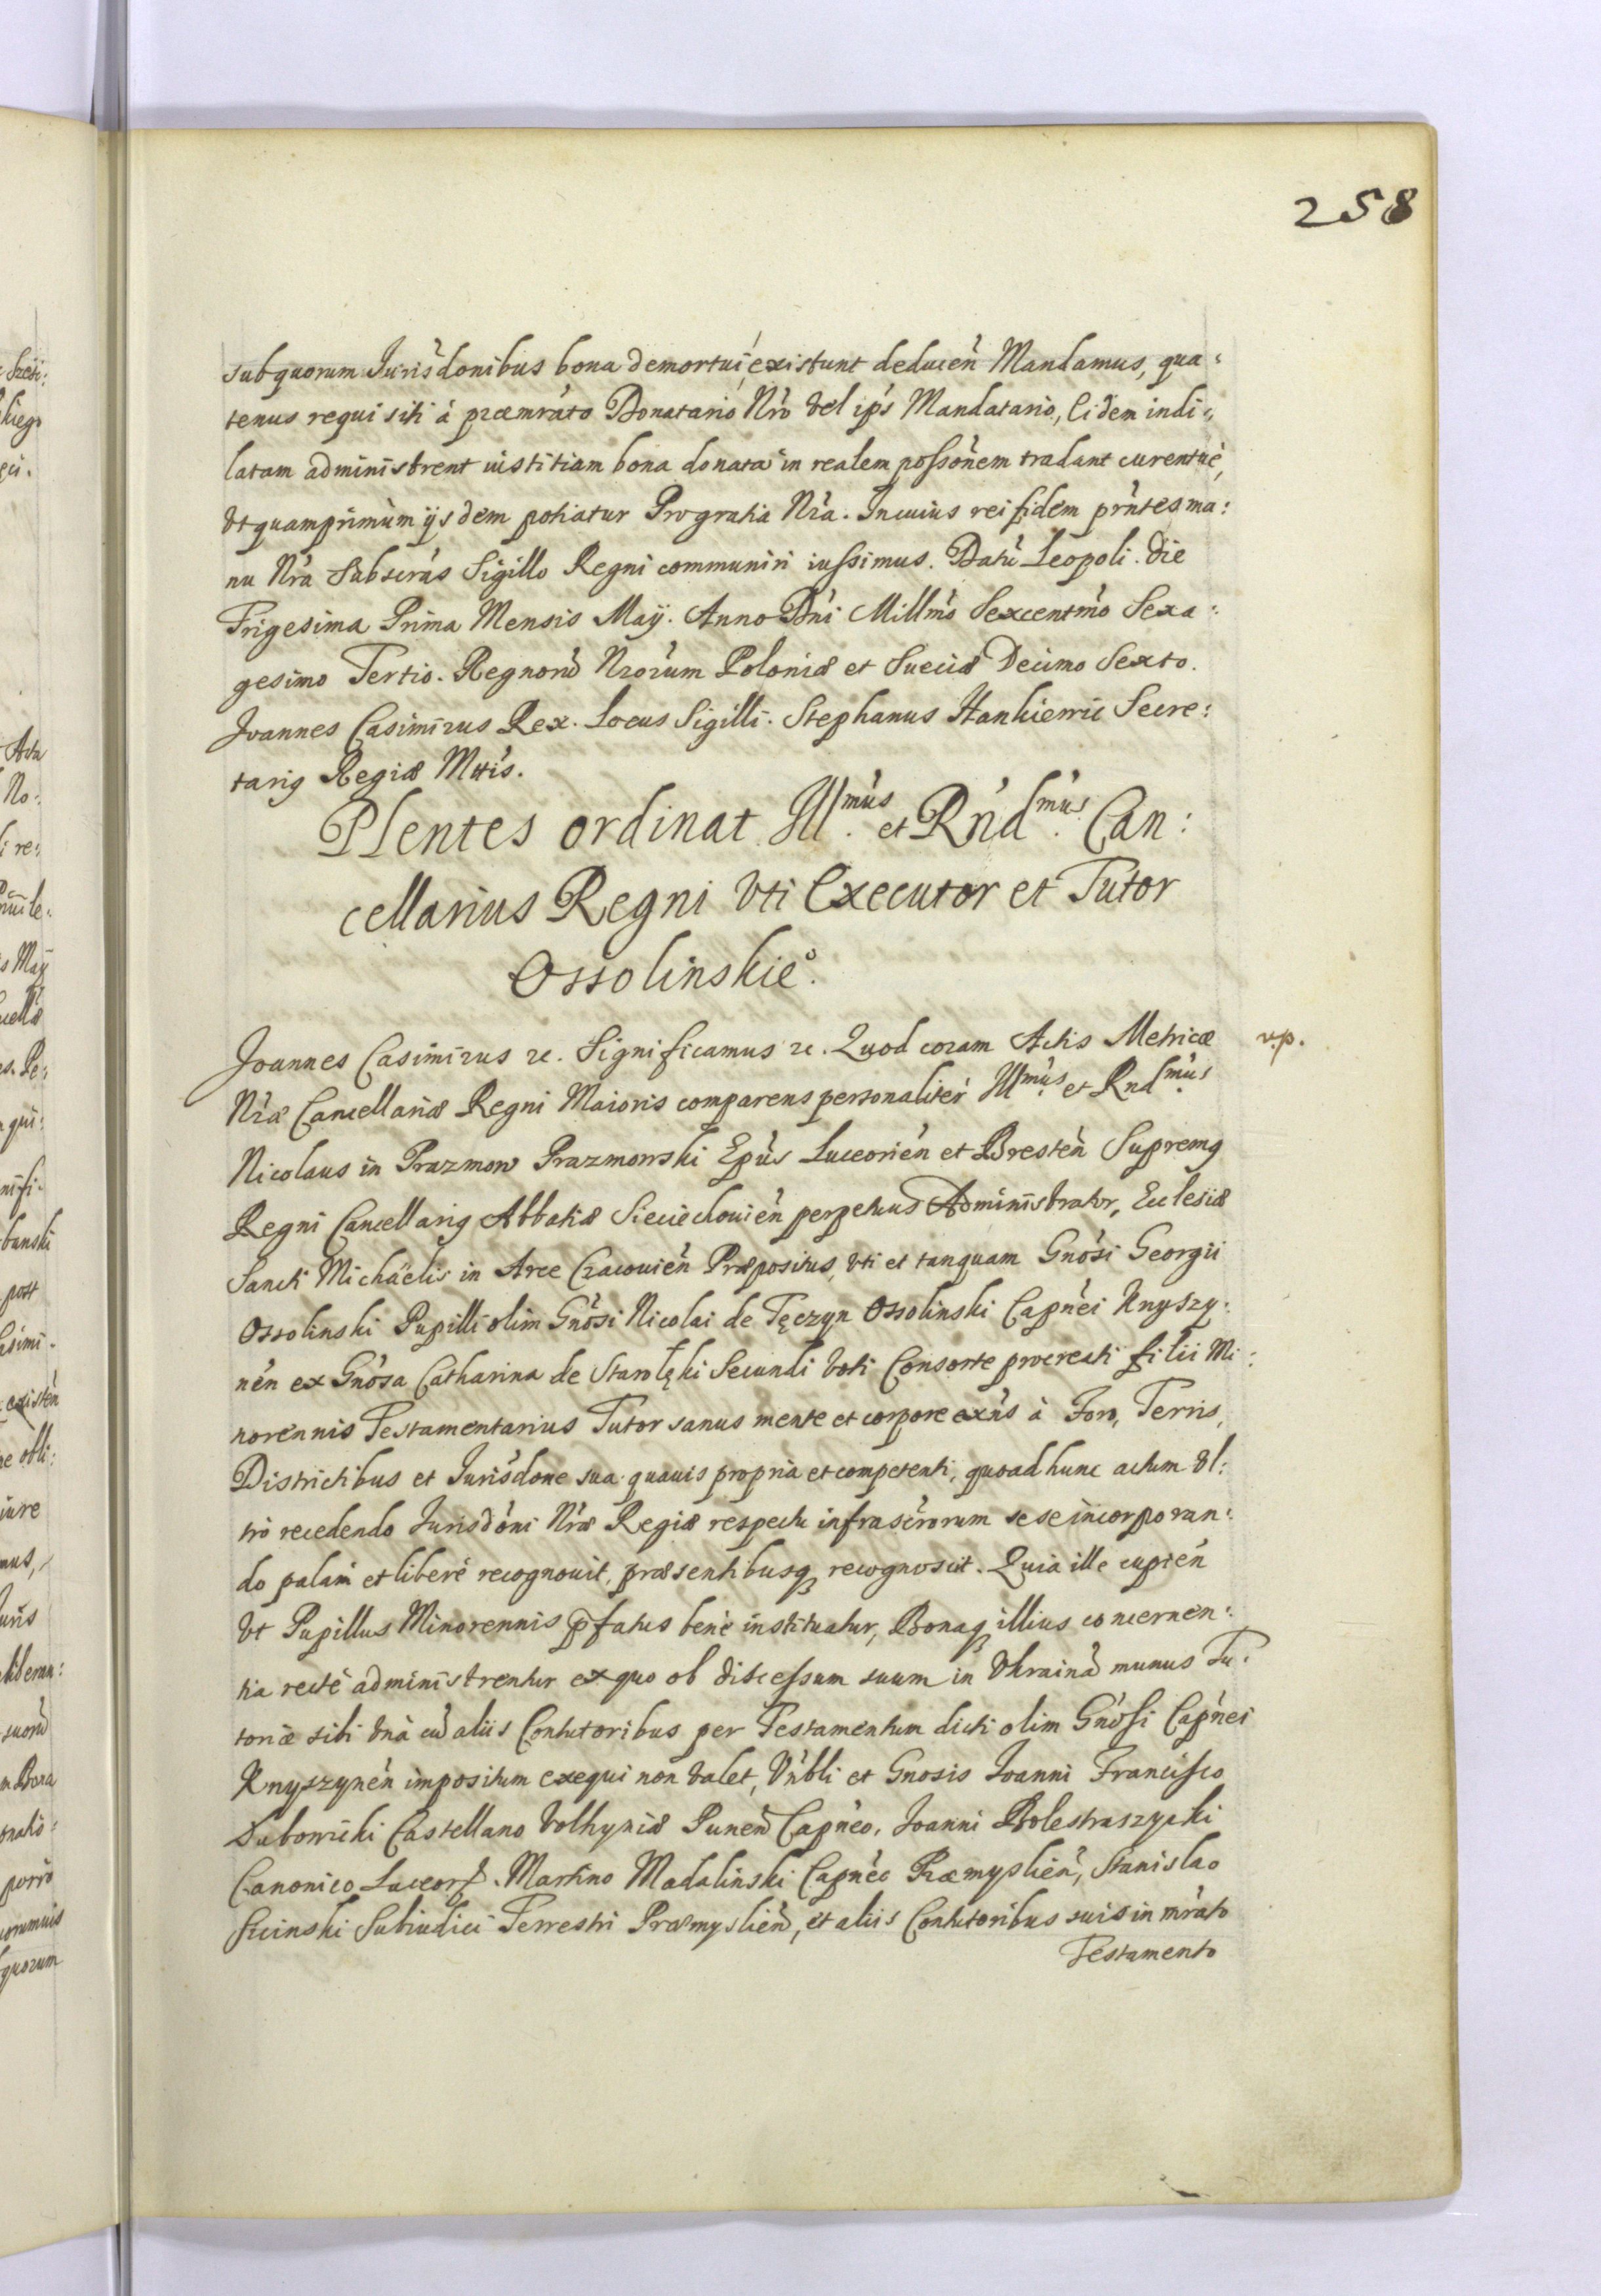 258
sub quorum Jurisdonibus bona demortui existunt deducen̄ Mandamus, qua:
tenus requisiti à præmrāto Donatario Nrō vel ipśs Mandatario, Eidem indi:
latam administrent iustitiam bona donata in realem poſsōnem tradant curentue,
vt quamprimùm ijsdem potiatur Pro gratia Nrā. In cuius rei fidem prńtes ma:
nu Nrā Subscrās Sigillo Regni communiri iuſsimus. Datū Leopoli. die
Trigesima Prima Mensis Maÿ. Anno Dńi Millmō Sexcentmō Sexa:
gesimo Tertio. Regnorū Nrorum Poloniæ et Sueciæ Decimo Sexto.
Joannes Casimirus Rex. Locus Sigilli. Stephanus Hankiewic Secre:
tarig Regiæ Mttis.
Plentes ordinat Illmus. et Rńdmus. Can:
cellarius Regni vti Executor et Tutor
Ossolinskie°.
Joannes Casimirus rc. Significamus rc. Quod coram Actis Metricæ
v.p.
Nrǽ Cancellariæ Regni Maioris comparens personalitèr Illmus. et Rndmus.
Nicolaus in Prazmow Prazmowski Epús Luceorień et Bresteń Supremg
Regni Cancellarig Abbatiæ Sieciechouień perpetuus Administrator, Ecclesiæ
Sancti Michäelis in Arce Cracouień Præpositus, vti et tanquam Gnósi Georgii
Ossolinski Pupilli olim Gnósi Nicolai de Tęczyn Ossolinski Capńei Knyszy:
neń ex Gnósa Catharina de Starolęki Secundi voti Consorte procreati filii Mi:
norennis Testamentarius Tutor sanus mente et corpore exńs à Foro, Terris,
Districtibus et Jurisdone sua quauis propria et competenti, quoad hunc actum vl:
trò recedendo Jurisdóni Nrǽ Regiæ respectu infrascrōrum sese incorporan:
do palam et liberè recognouit, præsentibusq recognoscit. Quia ille cupień
vt Pupillus Minorennis pfatus benè instituatur, Bonaq illius concernen:
tia rectè administrentur ex quo ob disceſsum suum in Vkrainā munus Tu:
toriæ sibi vnà cū aliis Contutoribus per Testamentum dicti olim Gnósi Capńei
Knyszyneń impositum exequi non valet, Vńbli et Gnosis Joanni Franciſco
Lubowicki Castellano Volhyniæ Puneń Capńeo, Joanni Bolestraszycki
Canonico Luceor. Martino Madalinski Capńeo Præmyslień, Stanislao
Sicinski Subiudici Terrestri Præmyslień, et aliis Contutoribus suis in mrāto
Testamento